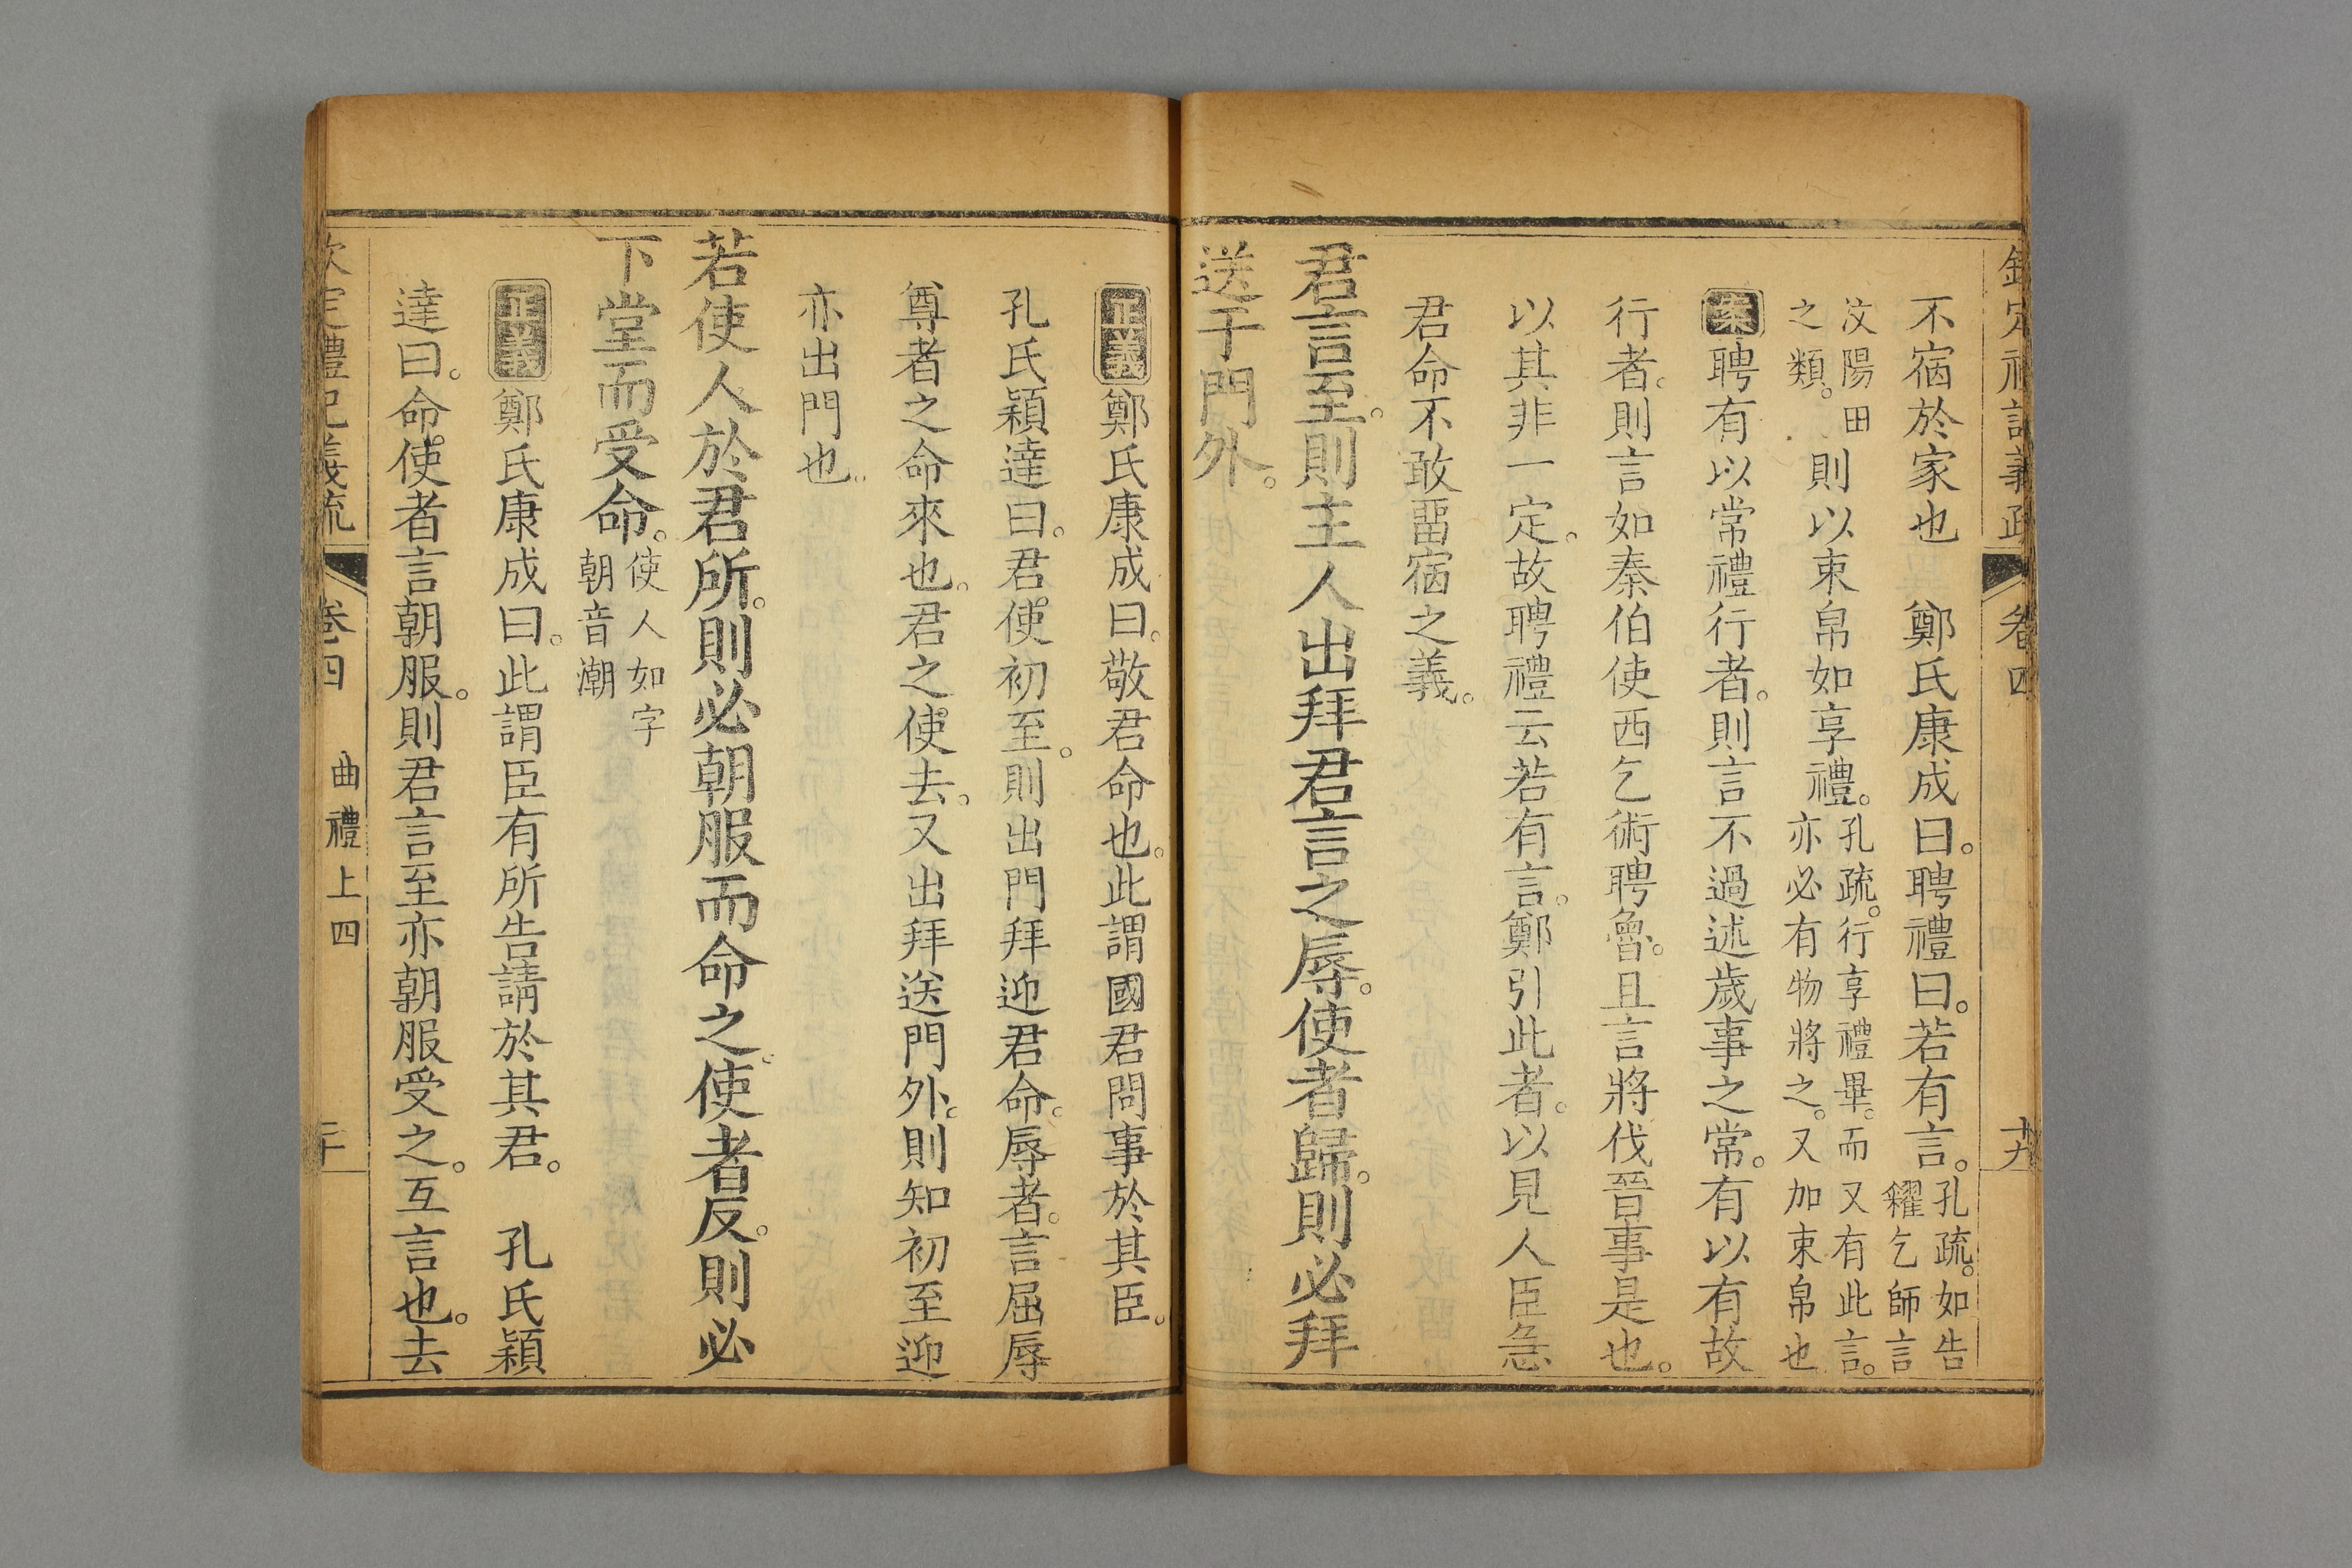 欽定禮記義疏 卷四 十九
不宿於家也 鄭氏康成曰。聘禮曰。若有言。孔疏。如告糴乞師言
汶陽田之類。則以束帛如享禮。孔疏。行享禮畢。而又有此言。亦必有物將之。又加束帛也
案聘有以常禮行者。則言不過述歲事之常。有以有故
行者。則言如秦伯使西乞術聘魯。且言將伐晉事是也。
以其非一定。故聘禮云若有言。鄭引此者。以見人臣急
君命不敢畱宿之義。
君言至。則主人出拜君言之辱。使者歸。則必拜
送于門外。
正義鄭氏康成曰。敬君命也。此謂國君問事於其臣。
孔氏穎達曰。君使初至。則出門拜迎君命。辱者。言屈辱
尊者之命來也。君之使去。又出拜送門外。則知初至迎
亦出門也
若使人於君所。則必朝服而命之。使者反。則必
下堂而受命。使人如字朝音潮
正義鄭氏康成曰。此謂臣有所告請於其君。 孔氏穎
達曰。命使者言朝服。則君言至亦朝服受之。互言也。去
欽定禮記義疏 卷四 曲禮上四 二十